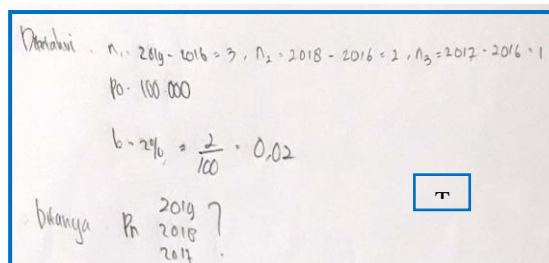 Diketahui . n₁ = 2019 - 2016 = 3 , n₂ = 2018 - 2016 = 2 , n₃ = 2017 - 2016 = 1
Po = 100.000
b = 2% = 2/100 = 0,02
T
2019
ditanya Pn 2018 ?
2017